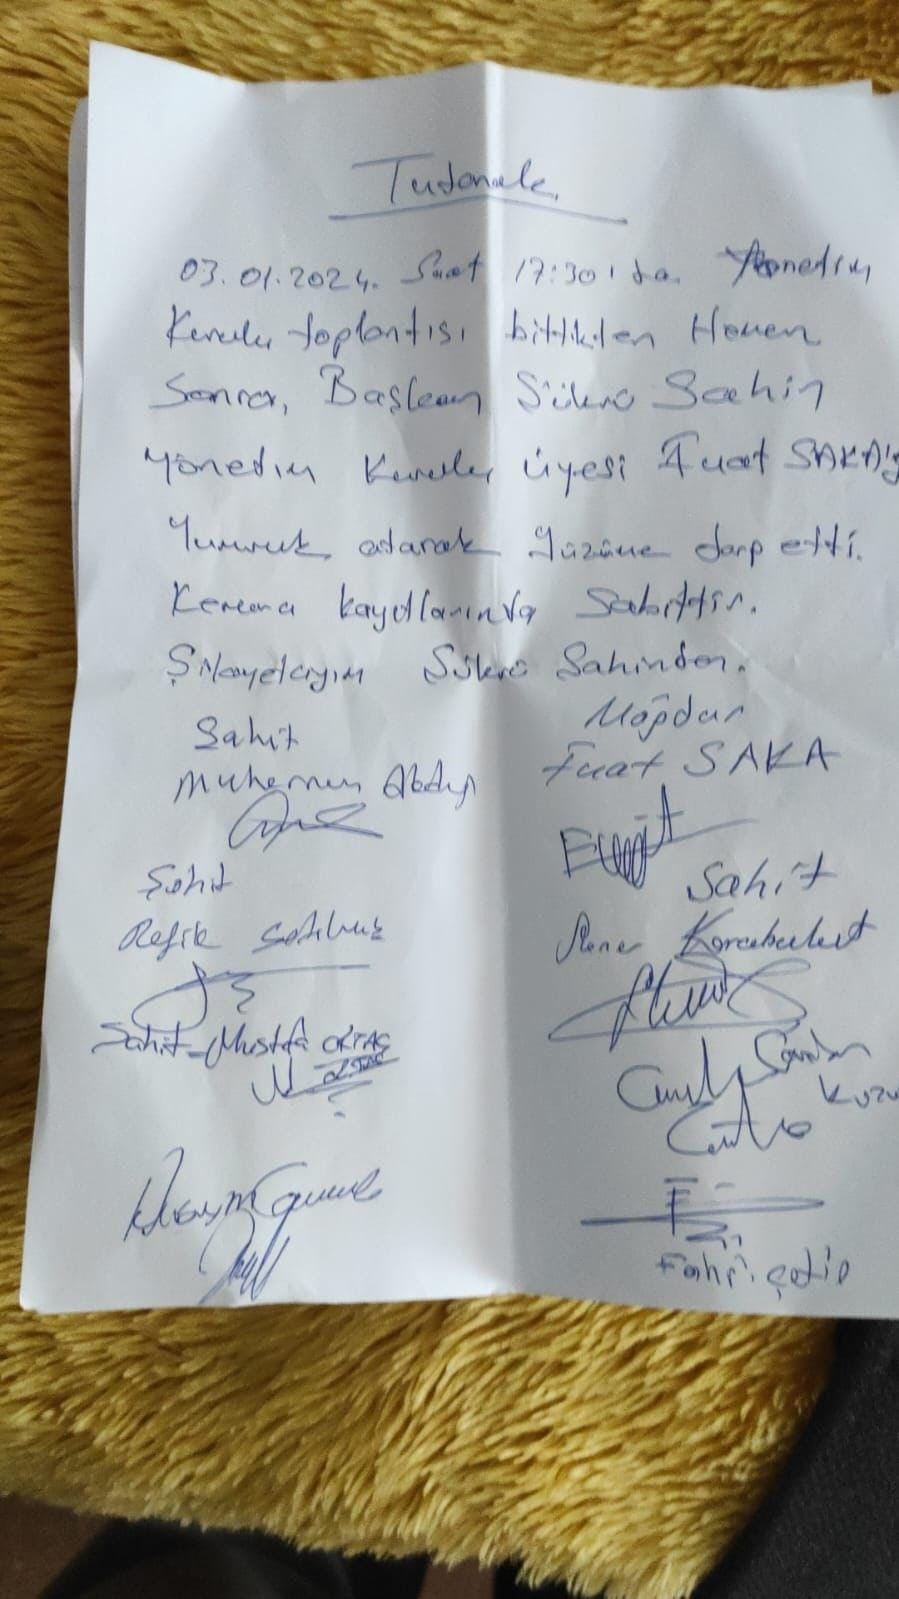 Tutanak
03.01.2024. Saat 17:30'da. Yönetim
Kurulu toplantısı bittikten Hemen
Sonra, Başkan Sükrü Sahin
Yönetim Kurulu üyesi Fuat SAKA'y
Yumruk atarak Yüzüne darp etti.
Kemera kayıtlarında Sabittir.
Şikayetçiyim Sükrü Sahinden.
Mağdur
Fuat SAKA
Sahit
Muharrem
Şahit
Refik
Sahit
Karabulut
Sahit - Mustafa OKTAŞ
Kuzu
Fahri çetin